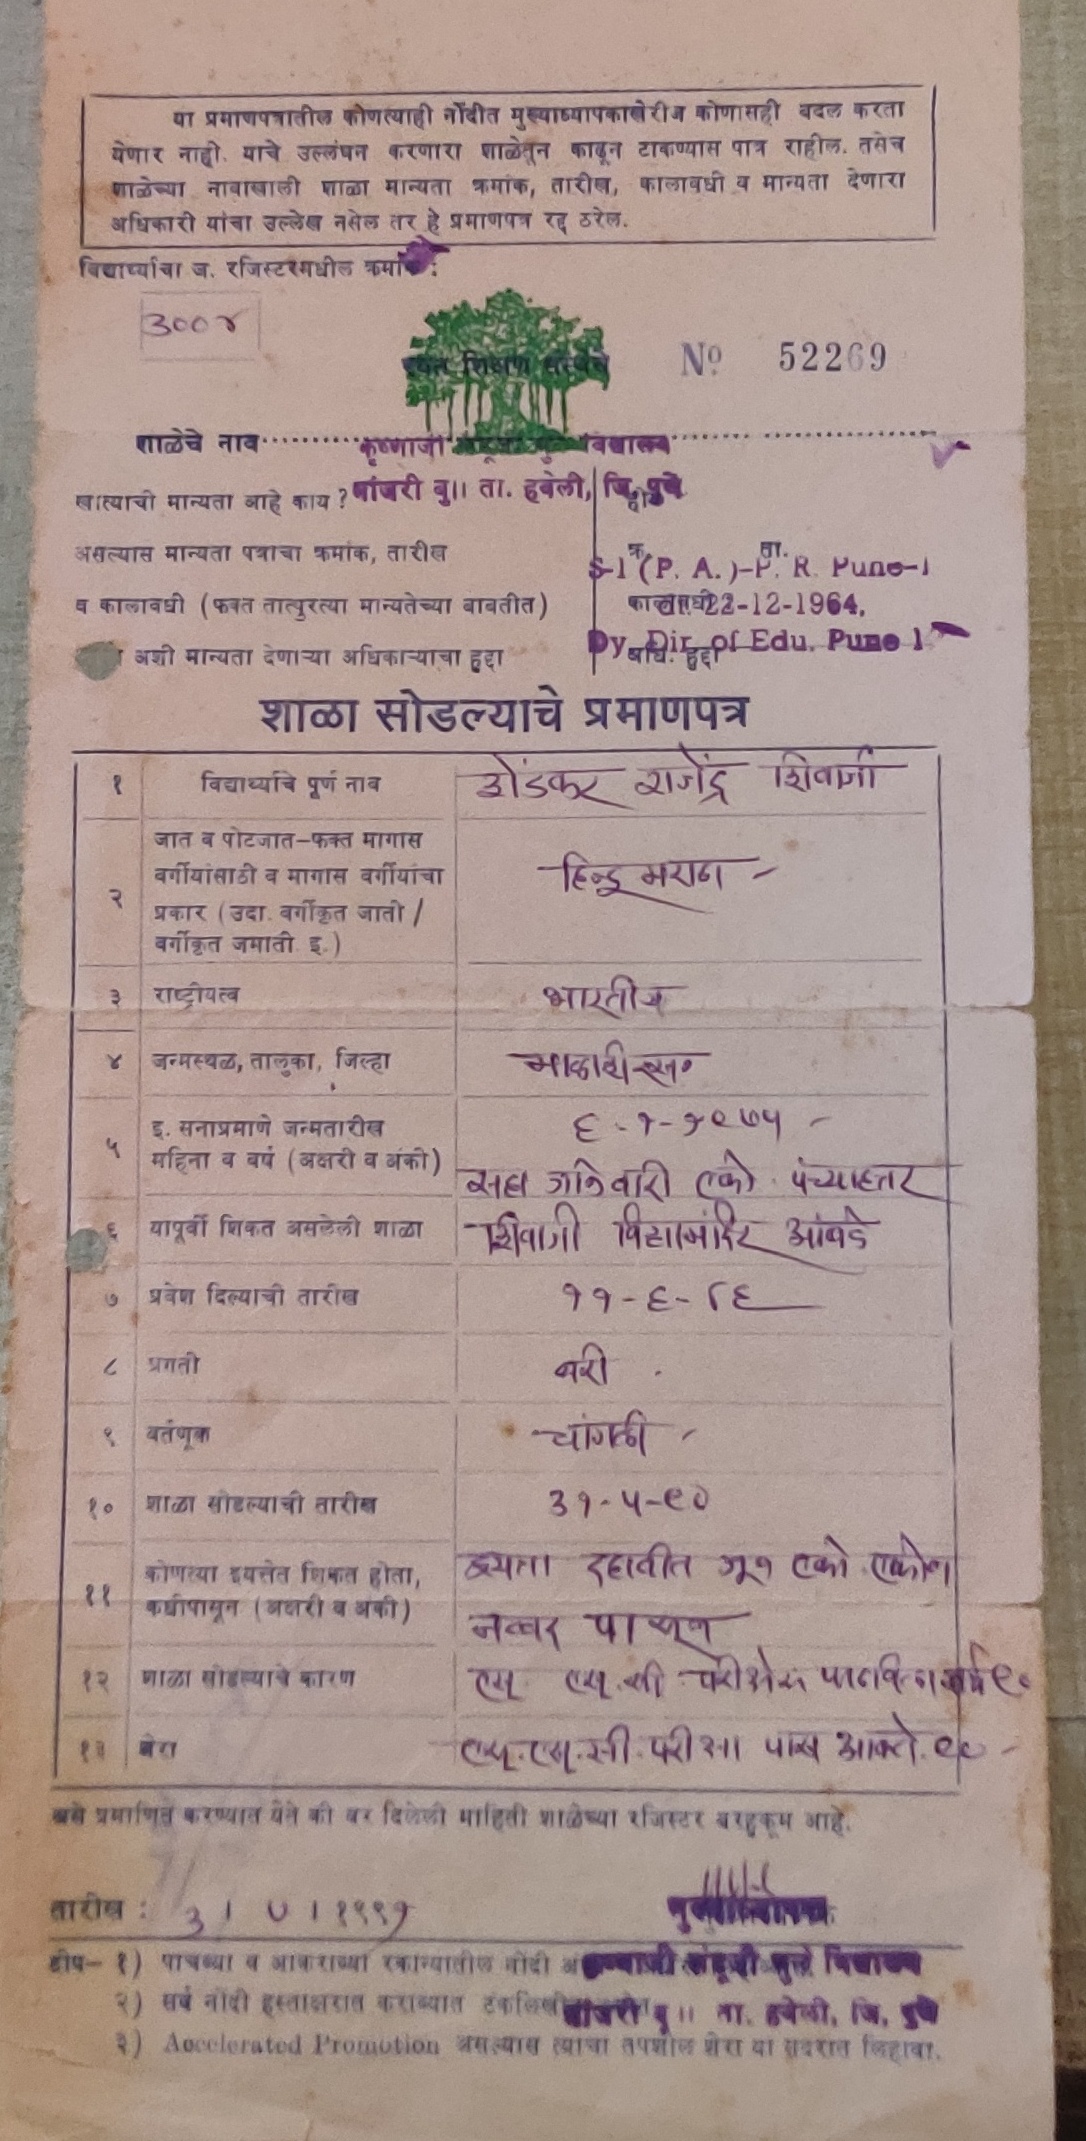 या प्रमाणपत्रातील कोणत्याही नोंदीत मुख्याध्यापकाखेरीज कोणासही बदल करता
येणार नाही. याचे उल्लंघन करणारा शाळेतून काढून टाकण्यास पात्र राहील. तसेच
शाळेच्या नावाखाली शाळा मान्यता क्रमांक, तारीख, कालावधी व मान्यता देणारा
अधिकारी यांचा उल्लेख नसेल तर हे प्रमाणपत्र रद्द ठरेल.
विद्यार्थ्याचा ज. रजिस्टरमधील क्रमांक :
३००४
रयत शिक्षण संस्थेचे
No 52269
शाळेचे नाव कृष्णाजी खंडूजी घुले विद्यालय
मांजरी बु॥ ता. हवेली, जि. पुणे
खात्याची मान्यता आहे काय ? होय
असल्यास मान्यता पत्राचा क्रमांक, तारीख क्र. ता.
S-1 (P. A.)-P. R. Pune-1
व कालावधी (फक्त तात्पुरत्या मान्यतेच्या बाबतीत) कालावधी 22-12-1964,
अशी मान्यता देणाऱ्या अधिकाऱ्याचा हुद्दा अधि. हुद्दा
Dy. Dir. of Edu. Pune 1
शाळा सोडल्याचे प्रमाणपत्र
१ विद्यार्थ्याचे पूर्ण नाव शेंडकर राजेंद्र शिवाजी
२ जात व पोटजात-फक्त मागास
वर्गीयांसाठी व मागास वर्गीयांचा
प्रकार (उदा. वर्गीकृत जाती /
वर्गीकृत जमाती इ.)
हिन्दू मराठा -
३ राष्ट्रीयत्व भारतीय
४ जन्मस्थळ, तालुका, जिल्हा
५ इ. सनाप्रमाणे जन्मतारीख
महिना व वर्ष (अक्षरी व अंकी)
६-१-१९७५ -
सहा जानेवारी एको. पंच्याहत्तर
६ यापूर्वी शिकत असलेली शाळा शिवाजी विद्यामंदिर आंबडे
७ प्रवेश दिल्याची तारीख ११-६-८६
८ प्रगती बरी .
९ वर्तणूक चांगली -
१० शाळा सोडल्याची तारीख ३१-५-९०
११ कोणत्या इयत्तेत शिकत होता,
केव्हापासून (अक्षरी व अंकी)
इयत्ता दहावीत जून एको. एकोण
नव्वद पासून
१२ शाळा सोडल्याचे कारण एस. एस. सी. परीक्षेस पाठविला मार्च ९०
१३ शेरा एस. एस. सी. परीक्षा पास ९० -
असे प्रमाणित करण्यात येते की वर दिलेली माहिती शाळेच्या रजिस्टर बरहुकूम आहे.
तारीख : ३ । ७ । १९९१
मुख्याध्यापक
टीप- १) पाचव्या व अकराव्या रकान्यातील नोंदी
कृष्णाजी खंडूजी घुले विद्यालय
२) सर्व नोंदी हस्ताक्षरात कराव्यात टंकलिखित
मांजरी बु॥ ता. हवेली, जि. पुणे
३) Accelerated Promotion असल्यास त्याचा तपशील शेरा या सदरात लिहावा.